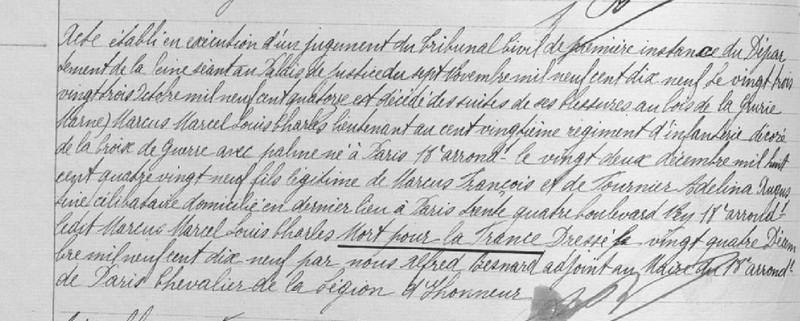 Acte établi en exécution d'un jugement du Tribunal Civil de première instance du Dépar
tement de la Seine séant au Palais de Justice du sept Novembre mil neuf cent dix neuf Le vingt trois
vingt trois Octobre mil neuf cent quatorze est décédé des suites de ses blessures au bois de la Grurie
Marne) Marcus Marcel Louis Charles lieutenant au cent vingtième régiment d'infanterie décoré
de la Croix de Guerre avec palme né à Paris 18e arrondt le vingt deux décembre mil huit
cent quatre vingt neuf fils légitime de Marcus François et de Fournier Adelina Augus
tine) célibataire domicilié en dernier lieu à Paris trente quatre boulevard Ney 18e arrondt
ledit Marcus Marcel Louis Charles Mort pour la France Dressé le vingt quatre Décem
bre mil neuf cent dix neuf par nous Alfred Besnard adjoint au Maire du 18e arrondt
de Paris Chevalier de la Légion d'Honneur